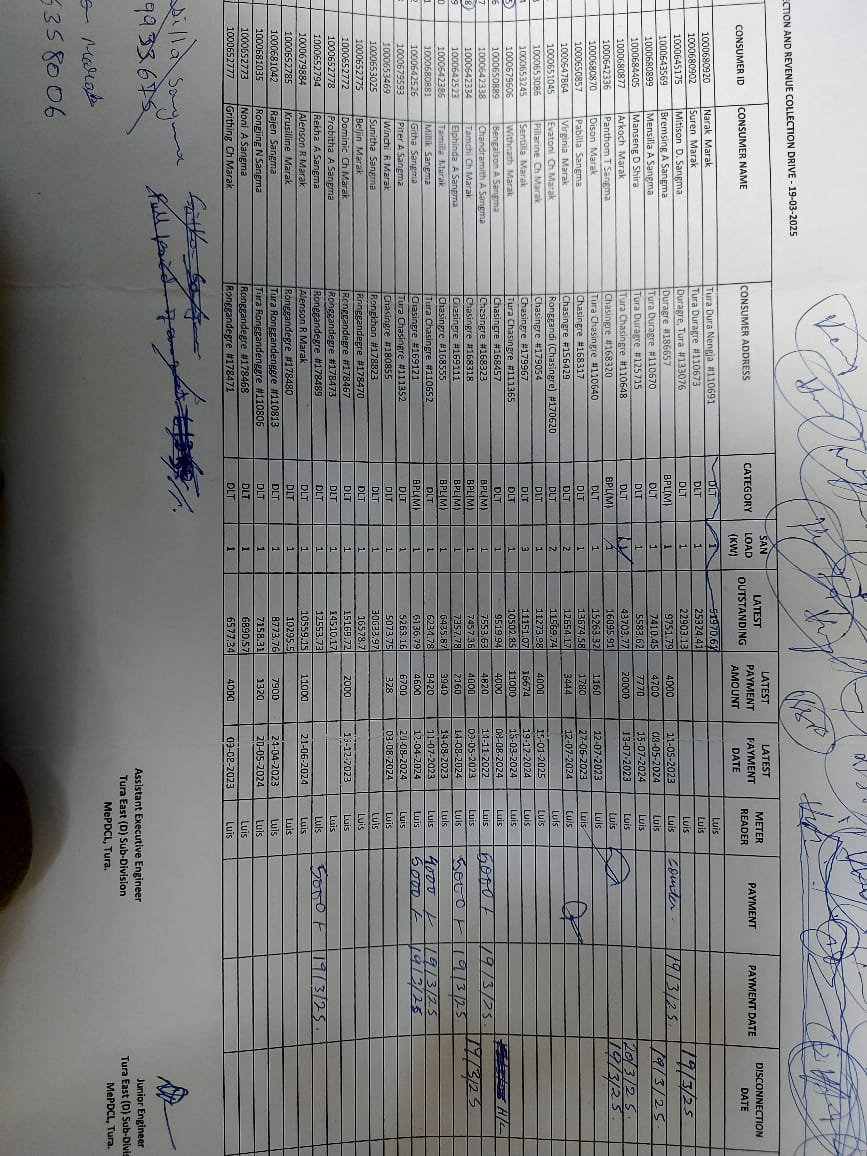 CTION AND REVENUE COLLECTION DRIVE - 19-03-2025
CONSUMER ID CONSUMER NAME CONSUMER ADDRESS CATEGORY SAN LOAD (KW) LATEST OUTSTANDING LATEST PAYMENT AMOUNT LATEST PAYMENT DATE METER READER PAYMENT PAYMENT DATE DISCONNECTION DATE
1000680920 Narak Marak Tura Dura Nengja #110691 DLT 1 51970.61 Luis
1000680902 Suren Marak Tura Duragre #110673 DLT 1 25324.41 Luis
1000645175 Mitson D. Sangma Duragre, Tura #133076 DLT 1 22903.13 Luis 19/3/25.
1000643569 Bremsing A Sangma Duragre #186657 BPL(M) 1 9751.79 4000 11-05-2023 Luis counter. 19/3/25.
1000680899 Mensilla A Sangma Tura Duragre #110670 DLT 1 7410.45 4700 08-05-2024 Luis 19/3/25.
1000684405 Manseng D Shira Tura Duragre #125715 DLT 1 5583.62 7770 15-07-2024 Luis
1000680877 Arkoch Marak Tura Chasingre #110648 DLT 43703.77 20000 13-07-2023 Luis 20/3/25.
1000642336 Panthorn T Sangma Chasingre #168320 BPL(M) 1 16095.91 Luis 19/3/25.
1000680870 Dison Marak Tura Chasingre #110640 DLT 1 15263.32 1160 12-07-2023 Luis
1000650857 Pabilla Sangma Chasingre #168317 DLT 1 13674.58 1780 27-06-2023 Luis
1000647864 Virginia Marak Chasingre #156429 DLT 2 12664.17 3444 12-07-2024 Luis
1000651045 Evatoni Ch Marak Ronggandi (Chasingre) #170620 DLT 2 11569.74 Luis
1000653086 Pillarine Ch Marak Chasingre #179054 DLT 1 11273.98 4000 15-01-2025 Luis
1000653245 Sentilla Marak Chasingre #179967 DLT 3 11151.07 16674 19-12-2024 Luis
1000679606 Withnath Marak Tura Chasingre #111365 DLT 1 10502.85 11000 15-03-2024 Luis
1000650889 Bengalson A Sangma Chasingre #168457 DLT 1 9519.94 4000 08-08-2024 Luis H/L
1000642338 Chandramith A Sangma Chasingre #168323 BPL(M) 1 7553.63 4820 14-11-2022 Luis 5000 19/3/25.
1000642334 Tamchi Ch Marak Chasingre #168318 BPL(M) 1 7457.16 4000 09-05-2023 Luis 19/3/25
1000642523 Elphinda A Sangma Chasingre #169111 BPL(M) 1 7357.78 2160 14-08-2024 Luis 5000 19/3/25.
1000642386 Tamilla Marak Chasingre #168555 BPL(M) 1 6435.87 3940 14-08-2023 Luis
1000680881 Millik Sangma Tura Chasingre #110652 DLT 1 6234.78 9420 11-07-2023 Luis 4000 19/3/25
1000642526 Githa Sangma Chasingre #169121 BPL(M) 1 6136.79 4600 12-04-2024 Luis 5000 19/3/25
1000679593 Piter A Sangma Tura Chasingre #111352 DLT 1 5263.16 6700 21-08-2024 Luis
1000653469 Winchi R Marak Chasingre #180855 DLT 1 5073.75 328 03-08-2024 Luis
1000653025 Sunitha Sangma Rongbhon #178823 DLT 1 30033.97 Luis
1000652775 Beljin Marak Ronggandegre #178470 DLT 1 16578.7 Luis
1000652772 Dominic Ch Marak Ronggandegre #178467 DLT 1 15169.72 2000 15-12-2023 Luis
1000652778 Probitha A Sangma Ronggandegre #178473 DLT 1 14510.17 Luis
1000652794 Rekha A Sangma Ronggandegre #178489 DLT 1 12553.73 Luis 5000 19/3/25.
1000679884 Alenson R Marak Alenson R Marak DLT 1 10559.15 11000 21-06-2024 Luis
1000652785 Krusiline Marak Ronggandegre #178480 DLT 1 10295.5 Luis
1000681042 Rajen Sangma Tura Ronggandenggre #110813 DLT 1 8773.76 7900 24-04-2023 Luis
1000681035 Rongjing N Sangma Tura Ronggandenggre #110806 DLT 1 7158.31 1320 20-05-2024 Luis
1000652773 Noni A Sangma Ronggandegre #178468 DLT 1 6890.57 Luis
1000652777 Grithing Ch Marak Ronggandegre #178471 DLT 1 6577.34 4000 09-08-2023 Luis
Sangma
993367
Marak
6358006
Assistant Executive Engineer
Tura East (D) Sub-Division
MePDCL, Tura.
Junior Engineer
Tura East (D) Sub-Divis
MePDCL, Tura.